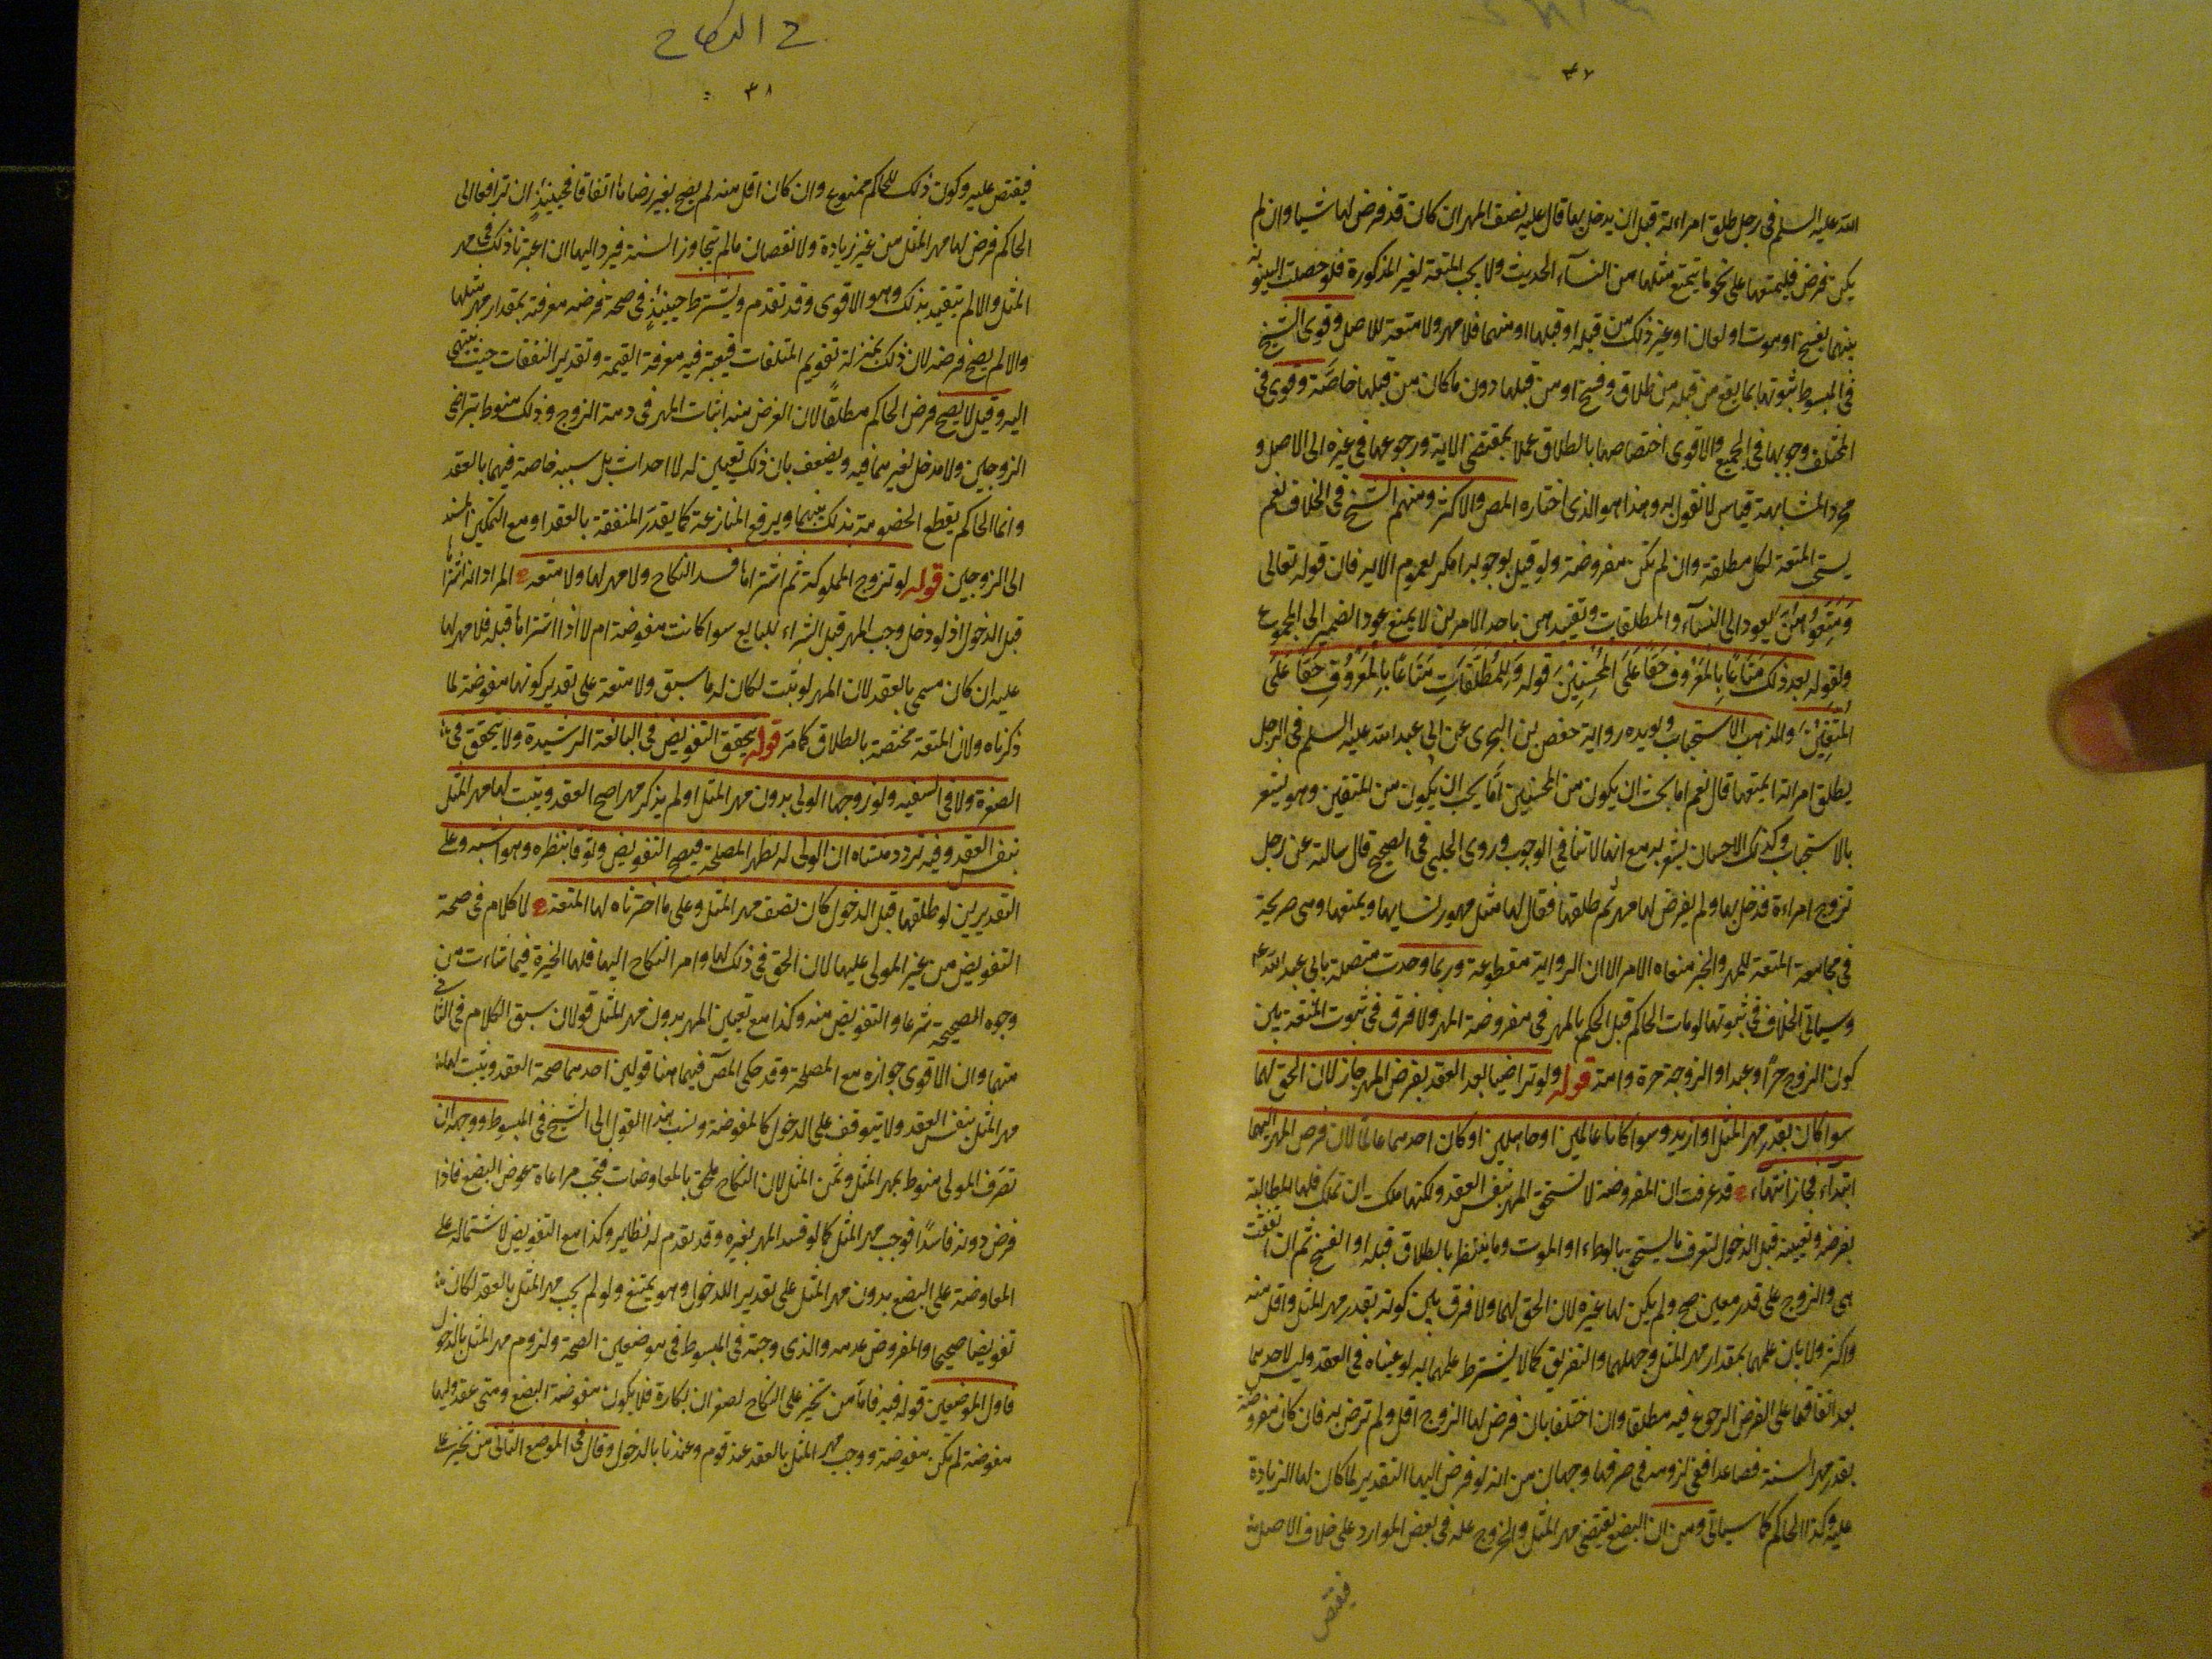 ٣٧
الله عليه السلم فى رجل طلق امراءته قبل ان يدخل بها قال عليه نصف المهر ان كان قد فرض لها شيا وان لم
يكن فرض فليمتعها على نحو ما يتمتع مثلها من النسآء الحديث ولا يجب المتعة لغير المذكورة فلو حصلت البينونه
بينهما بفسخ او موت او لعان او غير ذلك من قبله او قبلها او منهما فلا مهر ولا متعة للاصل وقوى الشيخ
فى المبسوط ثبوتها بما يقع من قبله من طلاق وفسخ او من قبلهما دون ما كان من قبلها خاصَّة وقوى فى
المختلف وجوبها فى الجميع والاقوى اختصاصها بالطلاق عملا بمقتضى الاية ورجوعها فى غيره الى الاصل و
مجرد المشابهة قياس لا نقول به وهذا هو الذى اختاره المص والاكثر ومنهم الشيخ فى الخلاف نعم
يستحب المتعة لكل مطلقة وان لم تكن مفروضة ولو قيل بوجوبه امكن لعموم الايه فان قوله تعالى
وَمَتِّعُوهُنَّ يعود الى النسآء والمطلقات وتقييدهن باحد الامرين لا يمنع عود الضمير الى المجموع
ولقوله بعد ذلك مَتَاعًا بِالْمَعْرُوفِ حَقًّا عَلَى الْمُحْسِنِيْنَ وقوله وَلِلْمُطَلَّقَاتِ مَتَاعًا بِالْمَعْرُوْفِ حَقًّا عَلَى
الْمُتَّقِيْنَ والمذهب الاستحباب ويويده رواية حفص بن البخترى عن ابى عبد الله عليه السلم فى الرجل
يطلق امراته ايمتعها قال نعم اما يحب ان يكون من المحسنين اَما يحب ان يكون من المتقين وهو يشعر
بالاستحباب وكذلك الاحسان يشعر به مع انهما لا تنافى الوجوب وروى الحلبى فى الصحيح قال سالته عن رجل
تزوج امراءة فدخل بها ولم يفرض لها مهر ثم طلقها فقال لها مثل مهور نسايها ويمتعها وهى صريحة
فى مجامعة المتعة للمهر والخبر معناه الامر الا ان الرواية مقطوعة وربما وجدت متصلة بابى عبد الله ع
وسياتى الخلاف فى ثبوتها لو مات الحاكم قبل الحكم بالمهر فى مفروضة المهر ولا فرق فى ثبوت المتعة بين
كون الزوج حرًا وعبدا والزوجة حرة وامة قوله ولو تراضيا بعد العقد بفرض المهر جاز لان الحق لهما
سوا كان بقدر مهر المثل او ازيد وسوا كانا عالمين او جاهلين او كان احدهما عالما لان فرض المهر اليهما
ابتدآء فجاز انتهاء قد عرفت ان المفوضة لا تستحق المهر بنفس العقد ولكنها ملكت ان تملك فلها المطالبة
بفرضه وتعيينه قبل الدخول لتعرف ما يستحق بالوطء او الموت وما يتشطر بالطلاق قبله او الفسخ ثم ان اتفقت
هى والزوج على قدر معين صح ولم يكن لها غيره لان الحق لهما ولا فرق بين كونه بقدر مهر المثل واقل منه
واكثر ولا بان علمهما بمقدار مهر المثل وجهلهما والتفريق كما لا يشترط علمهما به لو عيناه فى العقد وليس لاحدهما
بعد اتفاقهما على الفرض الرجوع فيه مطلقا وان اختلفا بان فرض لها الزوج اقل ولم ترض به فان كان مفروضه
بقدر مهر السنة فصاعدا ففى لزومه فى طرفها وجهان من انه لو فرض اليها التقدير لما كان لها الزيادة
عليه وكذا الحاكم كما سياتى ومن ان البضع يقتضى مهر المثل والخروج عنه فى بعض الموارد على خلاف الاصل
فيقتصر
ح النكاح
٣٨
فيقتصر عليه وكون ذلك للحاكم ممنوع وان كان اقل منه لم يصح بغير رضاها اتفاقا فحينئذٍ ان ترافعا الى
الحاكم فرض لها مهر المثل من غير زيادة ولا نقصان مالم يتجاوز السنة فيرد اليها ان اعتبرنا ذلك فى مهر
المثل والا لم يتقيد بذلك وهو الاقوى وقد تقدم ويشترط حينئذٍ فى صحة فرضه معرفته بمقدار مهر مثلها
والا لم يصح فرضه لان ذلك بمنزلة تقويم المتلفات فيعتبر فيه معرفة القيمة وتقدير النفقات حيث ينتهى
اليه وقيل لا يصح فرض الحاكم مطلقًا لان الغرض منه اثبات المهر فى ذمة الزوج وذلك منوط بتراضى
الزوجين ولا مدخل لغيرهما فيه ويضعف بان ذلك تعيين له لا احداث بل سببه خاصة فيهما بالعقد
وانما الحاكم يقطع الخصومة بذلك بينهما ويرفع المنازعة كما يقدر المنفقة بالعقد او مع التمكين المستند
الى الزوجين قوله لو تزوج المملوكة ثم اشتراها فسد النكاح ولا مهر لها ولا متعه المراد انه اشتراها
قبل الدخول اذ لو دخل وجب المهر قبل الشراء للبايع سوا كانت مفوضة ام لا اذا اشتراها قبله فلا مهر لها
عليه ان كان مسمى بالعقد لان المهر لو ثبت لكان له ما سبق ولا متعة على تقدير كونها مفوضة لما
ذكرناه ولان المتعة مختصة بالطلاق كما مر قوله يتحقق التفويض فى البالغة الرشيدة ولا يتحقق فى
الصغيرة ولا فى السفيه ولو زوجها الولى بدون مهر المثل او لم يذكر مهرا صح العقد ويثبت لها مهر المثل
بنفس العقد وفيه تردد منشاه ان الولى له نظر المصلحة فيصح التفويض وثوقا بنظره وهو اشبه وعلى
التقديرين لو طلقها قبل الدخول كان نصف مهر المثل وعلى ما اخترناه لها المتعة لا كلام فى صحة
التفويض من غير المولى عليها لان الحق فى ذلك لها وامر النكاح اليها فلها الخيرة فيما شاءت من
وجوه الصحيحة شرعا والتفويض منه وكذا مع تعيين المهر بدون مهر المثل قولان سبق الكلام فى الثانى
منهما وان الاقوى جوازه مع المصلحة وقد حكى المص فيما هنا قولين احدهما صحة العقد ويثبت لها
مهر المثل بنفس العقد ولا يتوقف على الدخول كالمفوضة ونسب هذا القول الى الشيخ فى المبسوط ووجهه ان
تصرف المولى منوط بمهر المثل وثمن المثل لان النكاح ملحق بالمعاوضات فيجب مراعاة عوض البضع فاذا
فرض دونه فاسدًا فوجب مهر المثل كما لو فسد المهر بغيره وقد تقدم له نظاير وكذا مع التفويض لاشتماله على
المعاوضة على البضع بدون مهر المثل على تقدير الدخول وهو يمتنع ولو لم يجب مهر المثل بالعقد لكان
تفويضا صحيحا والمفروض عدمه والذى وجدته فى المبسوط فى موضعين الصحة ولزوم مهر المثل بالدخول
فاول الموضعين قوله فيه فاما من تجبر على النكاح لصغر ان بكارة فلا يكون مفوضة البضع ومتى عقد وليها
مفوضة لم تكن مفوضة ووجب مهر المثل بالعقد عند قوم وعندنا بالدخول وقال فى الموضع الثانى من تجبر على